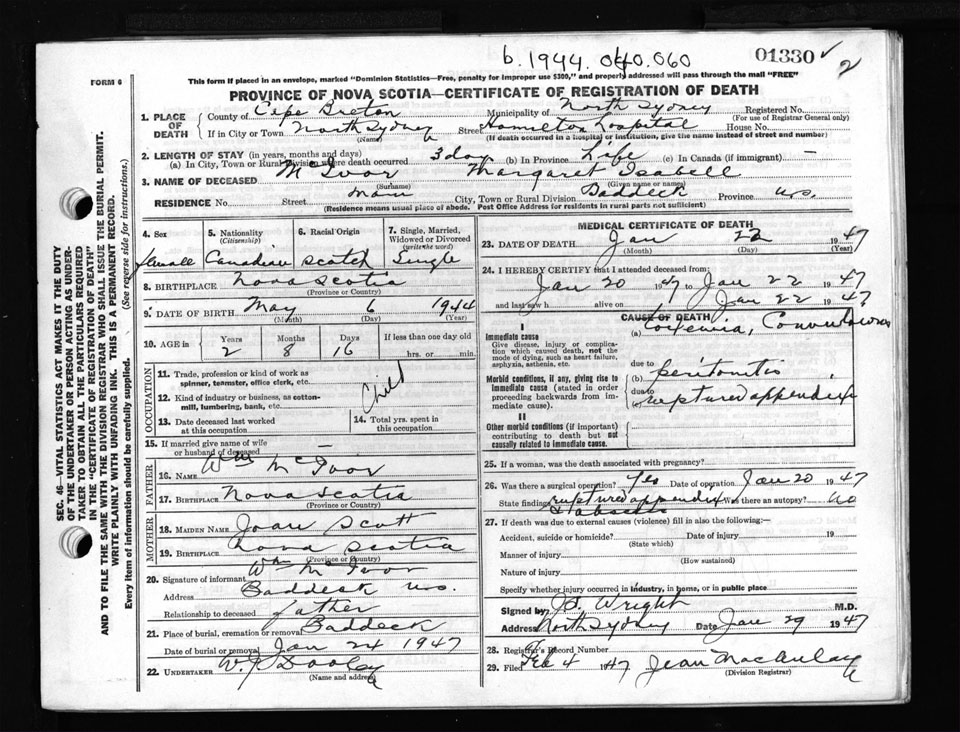 b. 1944. 040.060
01330 ✓
2
FORM 6
This form if placed in an envelope, marked "Dominion Statistics—Free, penalty for improper use $300," and properly addressed will pass through the mail "FREE"
PROVINCE OF NOVA SCOTIA—CERTIFICATE OF REGISTRATION OF DEATH
1. PLACE OF DEATH
County of Cape Breton Municipality of North Sydney Registered No.
(For use of Registrar General only)
If in City or Town North Sydney Street Hamilton Hospital House No.
(Name) (If death occurred in a hospital or institution, give name instead of street and number)
2. LENGTH OF STAY (in years, months and days)
(a) In City, Town or Rural Division where death occurred 3 day (b) In Province Life (c) In Canada (if immigrant) —
3. NAME OF DECEASED McIvor Margaret Isabell
(Surname) (Given name or names)
RESIDENCE No. Street Main City, Town or Rural Division Baddeck Province N.S.
(Residence means usual place of abode. Post Office Address for residents in rural parts not sufficient)
4. Sex
female
5. Nationality (Citizenship)
Canadian
6. Racial Origin
Scotch
7. Single, Married, Widowed or Divorced (write the word)
Single
8. BIRTHPLACE Nova Scotia
(Province or Country)
9. DATE OF BIRTH May 6 1944
(Month) (Day) (Year)
10. AGE in Years Months Days If less than one day old
2 8 16 hrs. or min.
OCCUPATION
11. Trade, profession or kind of work as spinner, teamster, office clerk, etc.
12. Kind of industry or business, as cotton-mill, lumbering, bank, etc.
Child
13. Date deceased last worked at this occupation
14. Total yrs. spent in this occupation
15. If married give name of wife or husband of deceased —
FATHER
16. NAME Wm McIvor
17. BIRTHPLACE Nova Scotia
(Province or Country)
MOTHER
18. MAIDEN NAME Joan Scott
19. BIRTHPLACE Nova Scotia
(Province or Country)
20. Signature of informant Wm McIvor
Address Baddeck N.S.
Relationship to deceased father
21. Place of burial, cremation or removal Baddeck
Date of burial or removal Jan 24 1947
22. UNDERTAKER W. J. Dooley
(Name and address)
MEDICAL CERTIFICATE OF DEATH
23. DATE OF DEATH Jan 22 1947
(Month) (Day) (Year)
24. I HEREBY CERTIFY that I attended deceased from:
Jan 20 1947 to Jan 22 1947
and last saw h alive on Jan 22 1947
CAUSE OF DEATH
I
Immediate cause
Give disease, injury or complication which caused death, not the mode of dying, such as heart failure, asphyxia, asthenia, etc.
(a) Toxemia, Convulsions
due to
Morbid conditions, if any, giving rise to immediate cause (stated in order proceeding backwards from immediate cause).
(b) peritonitis
due to
(c) ruptured appendix
II
Other morbid conditions (if important) contributing to death but not causally related to immediate cause.
25. If a woman, was the death associated with pregnancy?
26. Was there surgical operation? Yes Date of operation Jan 20 1947
State findings ruptured appendix & abscess Was there an autopsy? No
27. If death was due to external causes (violence) fill in also the following:—
Accident, suicide or homicide? Date of injury 19
(State which)
Manner of injury
(How sustained)
Nature of injury
Specify whether injury occurred in industry, in home, or in public place
Signed by Wright M.D.
Address North Sydney Date Jan 29 1947
28. Registrar's Record Number
29. Filed Feb 4 1947 Jean MacAulay
(Division Registrar)
SEC. 46—VITAL STATISTICS ACT MAKES IT THE DUTY
OF THE UNDERTAKER OR PERSON ACTING AS UNDER-
TAKER TO OBTAIN ALL THE PARTICULARS REQUIRED
IN THE "CERTIFICATE OF REGISTRATION OF DEATH"
AND TO FILE THE SAME WITH THE DIVISION REGISTRAR WHO SHALL ISSUE THE BURIAL PERMIT.
WRITE PLAINLY WITH UNFADING INK. THIS IS A PERMANENT RECORD.
Every item of information should be carefully supplied. (See reverse side for instructions.)